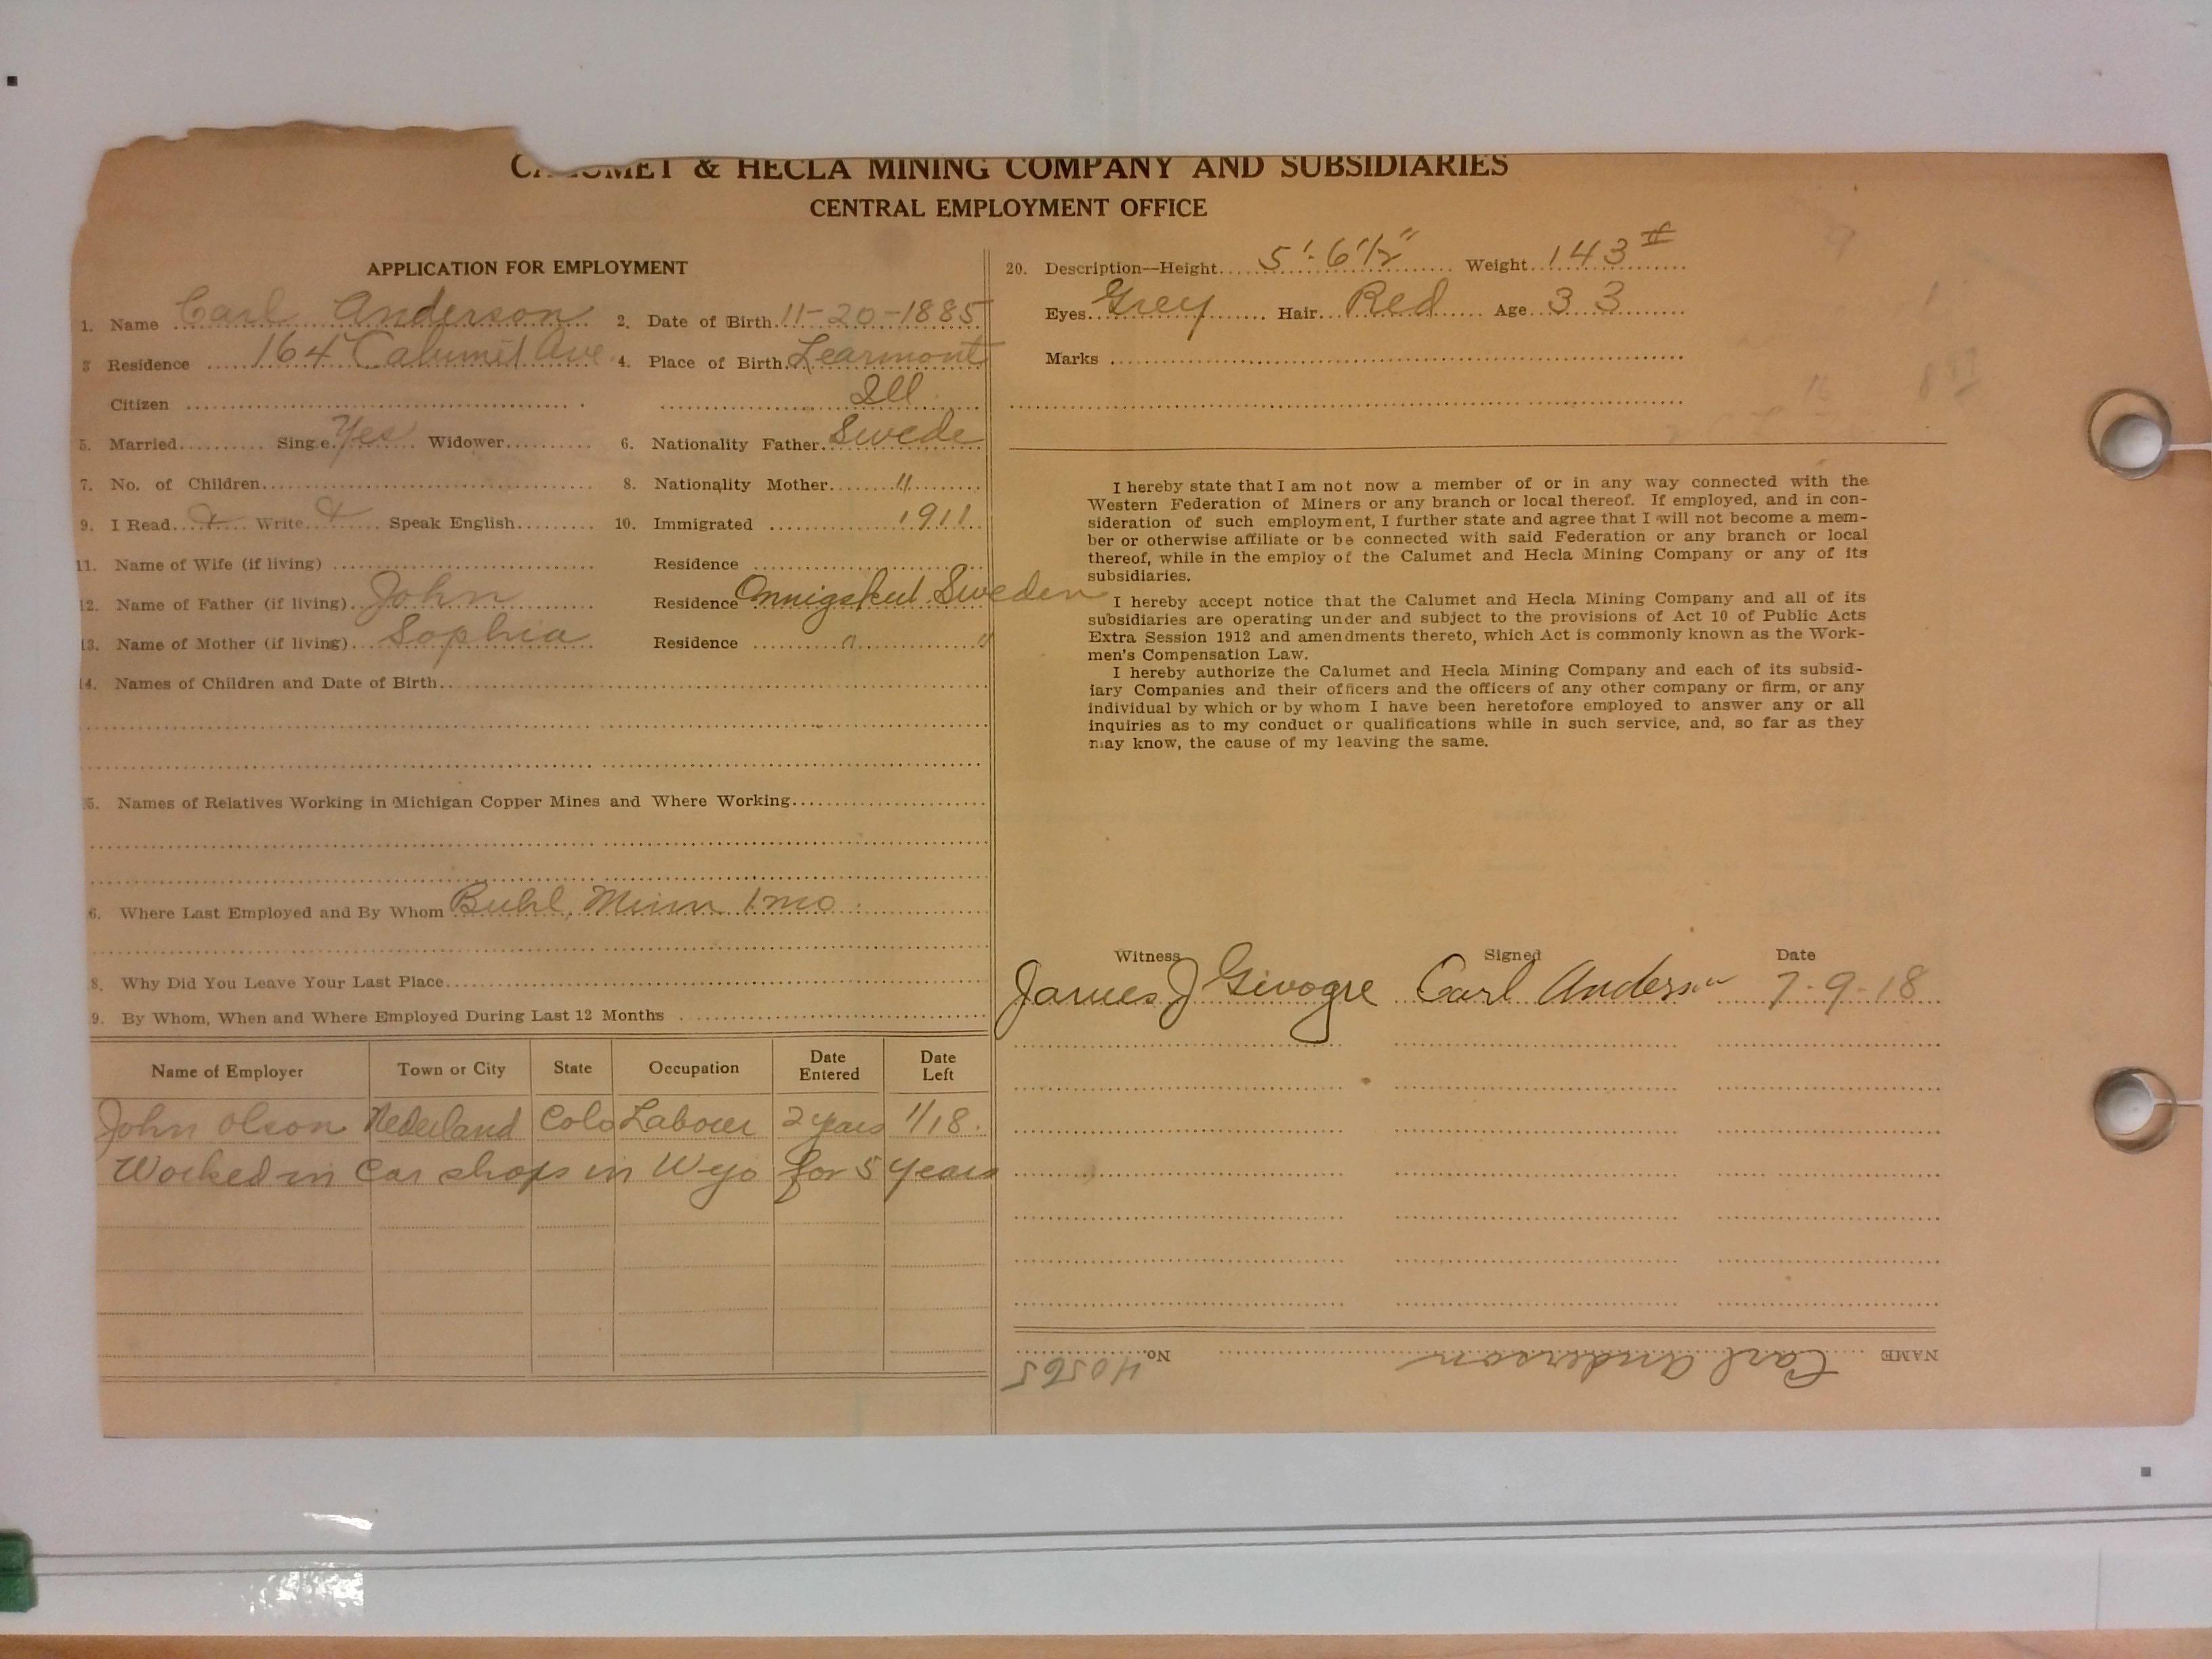 CALUMET & HECLA MINING COMPANY AND SUBSIDIARIES
CENTRAL EMPLOYMENT OFFICE
APPLICATION FOR EMPLOYMENT
1. Name Carl Anderson 2. Date of Birth 11-20-1885
3 Residence 164 Calumet Ave. 4. Place of Birth Learmont
Citizen Ill
5. Married Single Yes Widower 6. Nationality Father Swede
7. No. of Children 8. Nationality Mother "
9. I Read Write Speak English 10. Immigrated 1911
11. Name of Wife (if living) Residence
12. Name of Father (if living) John Residence Sweden
13. Name of Mother (if living) Sophia Residence " "
14. Names of Children and Date of Birth
5. Names of Relatives Working in Michigan Copper Mines and Where Working
6. Where Last Employed and By Whom Buhl, Minn 1 mo.
8. Why Did You Leave Your Last Place
9. By Whom, When and Where Employed During Last 12 Months
Name of Employer Town or City State Occupation Date Entered Date Left
John Olson Nederland Colo Labourer 2 years 1/18.
Worked in Car shops in Wyo for 5 years
20. Description—Height 5'-6½" Weight 143 #
Eyes Grey Hair Red Age 33
Marks
I hereby state that I am not now a member of or in any way connected with the
Western Federation of Miners or any branch or local thereof. If employed, and in con-
sideration of such employment, I further state and agree that I will not become a mem-
ber or otherwise affiliate or be connected with said Federation or any branch or local
thereof, while in the employ of the Calumet and Hecla Mining Company or any of its
subsidiaries.
I hereby accept notice that the Calumet and Hecla Mining Company and all of its
subsidiaries are operating under and subject to the provisions of Act 10 of Public Acts
Extra Session 1912 and amendments thereto, which Act is commonly known as the Work-
men's Compensation Law.
I hereby authorize the Calumet and Hecla Mining Company and each of its subsid-
iary Companies and their officers and the officers of any other company or firm, or any
individual by which or by whom I have been heretofore employed to answer any or all
inquiries as to my conduct or qualifications while in such service, and, so far as they
may know, the cause of my leaving the same.
Witness Signed Date
James J Givogre Carl Anderson 7-9-18
NAME Carl Anderson No. 40565